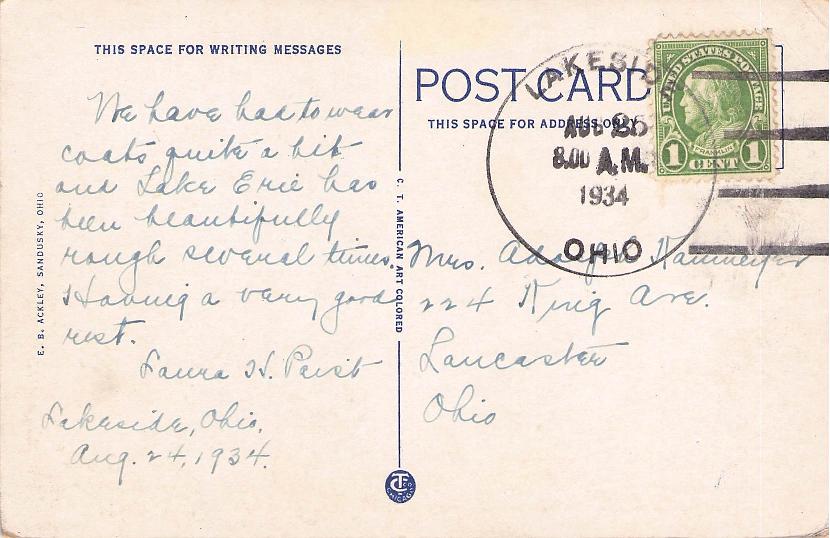 THIS SPACE FOR WRITING MESSAGES
We have had to wear
coats quite a bit
and Lake Erie has
been beautifully
rough several times.
Having a very good
rest.
Laura H. Paist
Lakeside, Ohio.
Aug. 24, 1934.
E. B. ACKLEY, SANDUSKY, OHIO
C. T. AMERICAN ART COLORED
POST CARD
THIS SPACE FOR ADDRESS ONLY
LAKESIDE
AUG 25
8.00 A.M.
1934
OHIO
UNITED STATES POSTAGE
FRANKLIN
1 CENT 1
Mrs. Adolph
224 King Ave.
Lancaster
Ohio
CHICAGO